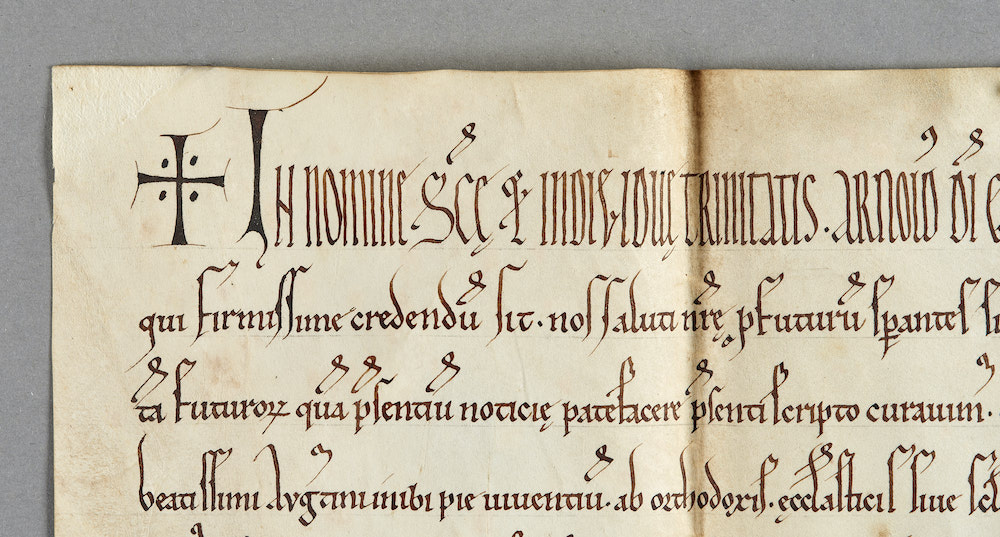 IN NOMINE SCĘ & INDIVIDUĘ TRINITATIS · ARNOLD DI
qui firmissime credendū sit · nos saluti nrę pfuturū sperantes
ta futuroꝝ quā psentiū noticię patefacere psenti scripto curavim ·
beatissimi Avgtini inibi pie viventiū · ab orthodoxis · ecclasticis sive